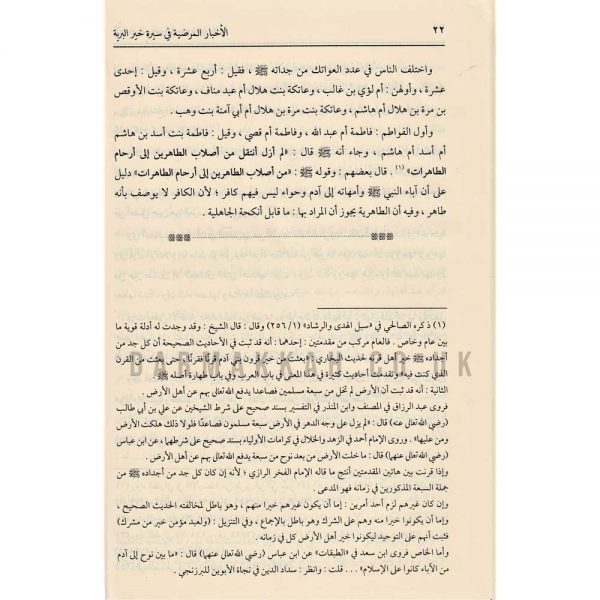 ٢٢
الأخبار المرضية في سيرة خير البرية
واختلف الناس في عدد العواتك من جداته ﷺ ، فقيل : أربع عشرة ، وقيل : إحدى
عشرة ، وأولهن : أم لؤي بن غالب ، وعاتكة بنت هلال أم عبد مناف ، وعاتكة بنت الأوقص
بن مرة بن هلال أم هاشم ، وعاتكة بنت مرة بن هلال أم أبي آمنة بنت وهب .
وأول الفواطم : فاطمة أم عبد الله ، وفاطمة أم قصي ، وقيل : فاطمة بنت أسد بن هاشم
أم أسد أم هاشم ، وجاء أنه ﷺ قال : «لم أزل أنتقل من أصلاب الطاهرين إلى أرحام
الطاهرات» (١) . قال بعضهم : وقوله ﷺ : «من أصلاب الطاهرين إلى أرحام الطاهرات» دليل
على أن آباء النبي ﷺ وأمهاته إلى آدم وحواء ليس فيهم كافر ؛ لأن الكافر لا يوصف بأنه
طاهر ، وفيه أن الطاهرية يجوز أن المراد بها : ما قابل أنكحة الجاهلية .
(١) ذكره الصالحي في «سبل الهدى والرشاد» (٢٥٦/١) وقال : قال الشيخ : وقد وجدت له أدلة قوية ما
بين عام وخاص . فالعام مركب من مقدمتين : إحداهما : أنه قد ثبت في الأحاديث الصحيحة أن كل جد من
أجداده ﷺ خير أهل قرنه لحديث البخاري : «بعثت من خير قرون بني آدم قرنا فقرنا حتى بعثت من القرن
الذي كنت فيه» وتقدمت أحاديث كثيرة في هذا المعنى في باب العرب وفي باب طهارة أصله ﷺ .
الثانية : أنه قد ثبت أن الأرض لم تخل من سبعة مسلمين فصاعدا يدفع الله تعالى بهم عن أهل الأرض .
فروى عبد الرزاق في المصنف وابن المنذر في التفسير بسند صحيح على شرط الشيخين عن علي بن أبي طالب
(رضي الله تعالى عنه) قال : «لم يزل على وجه الدهر في الأرض سبعة مسلمون فصاعدًا فلولا ذلك هلكت الأرض
ومن عليها» . وروى الإمام أحمد في الزهد والخلال في كرامات الأولياء بسند صحيح على شرطهما ، عن ابن عباس
(رضي الله تعالى عنهما) قال : ما خلت الأرض من بعد نوح من سبعة يدفع الله تعالى بهم عن أهل الأرض .
وإذا قرنت بين هاتين المقدمتين أنتج ما قاله الإمام الفخر الرازي ؛ لأنه إن كان كل جد من أجداده ﷺ من
جملة السبعة المذكورين في زمانه فهو المدعى .
وإن كان غيرهم لزم أحد أمرين : إما أن يكون غيرهم خيرا منهم ، وهو باطل لمخالفته الحديث الصحيح ،
وإما أن يكونوا خيرا منه وهم على الشرك وهو باطل بالإجماع ، وفي التنزيل : (ولعبد مؤمن خير من مشرك)
فثبت أنهم على التوحيد ليكونوا خير أهل الأرض كل في زمانه .
وأما الخاص فروى ابن سعد في «الطبقات» عن ابن عباس (رضي الله تعالى عنهما) قال : «ما بين نوح إلى آدم
من الآباء كانوا على الإسلام» ... قلت : وانظر : سداد الدين في نجاة الأبوين للبرزنجي .